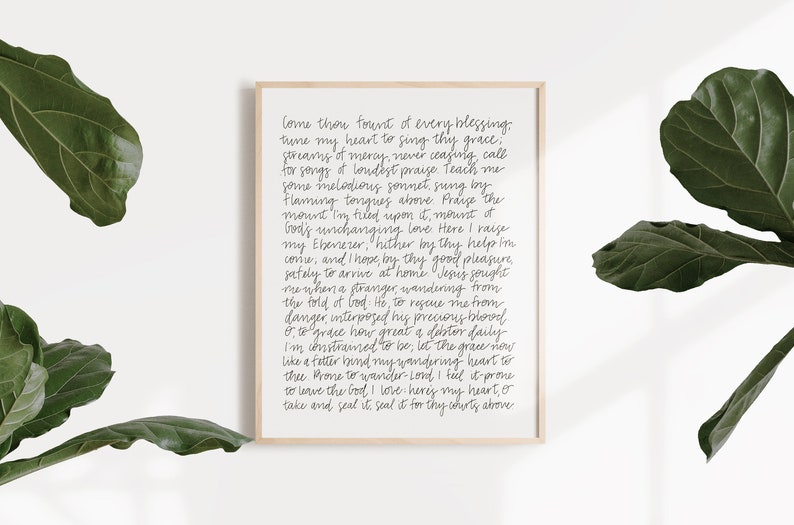 Come thou fount of every blessing,
tune my heart to sing thy grace;
streams of mercy, never ceasing, call
for songs of loudest praise. Teach me
some melodious sonnet, sung by
flaming tongues above. Praise the
mount I'm fixed upon it, mount of
God's unchanging love. Here I raise
my Ebenezer; hither by thy help I'm
come; and I hope, by thy good pleasure,
safely to arrive at home. Jesus sought
me when a stranger, wandering from
the fold of God: He, to rescue me from
danger, interposed his precious blood.
O, to grace how great a debtor daily
I'm constrained to be; let the grace now
like a fetter bind my wandering heart to
thee. Prone to wander-Lord I feel it-prone
to leave the God, I love: here's my heart, O
take and seal it, seal it for thy courts above.